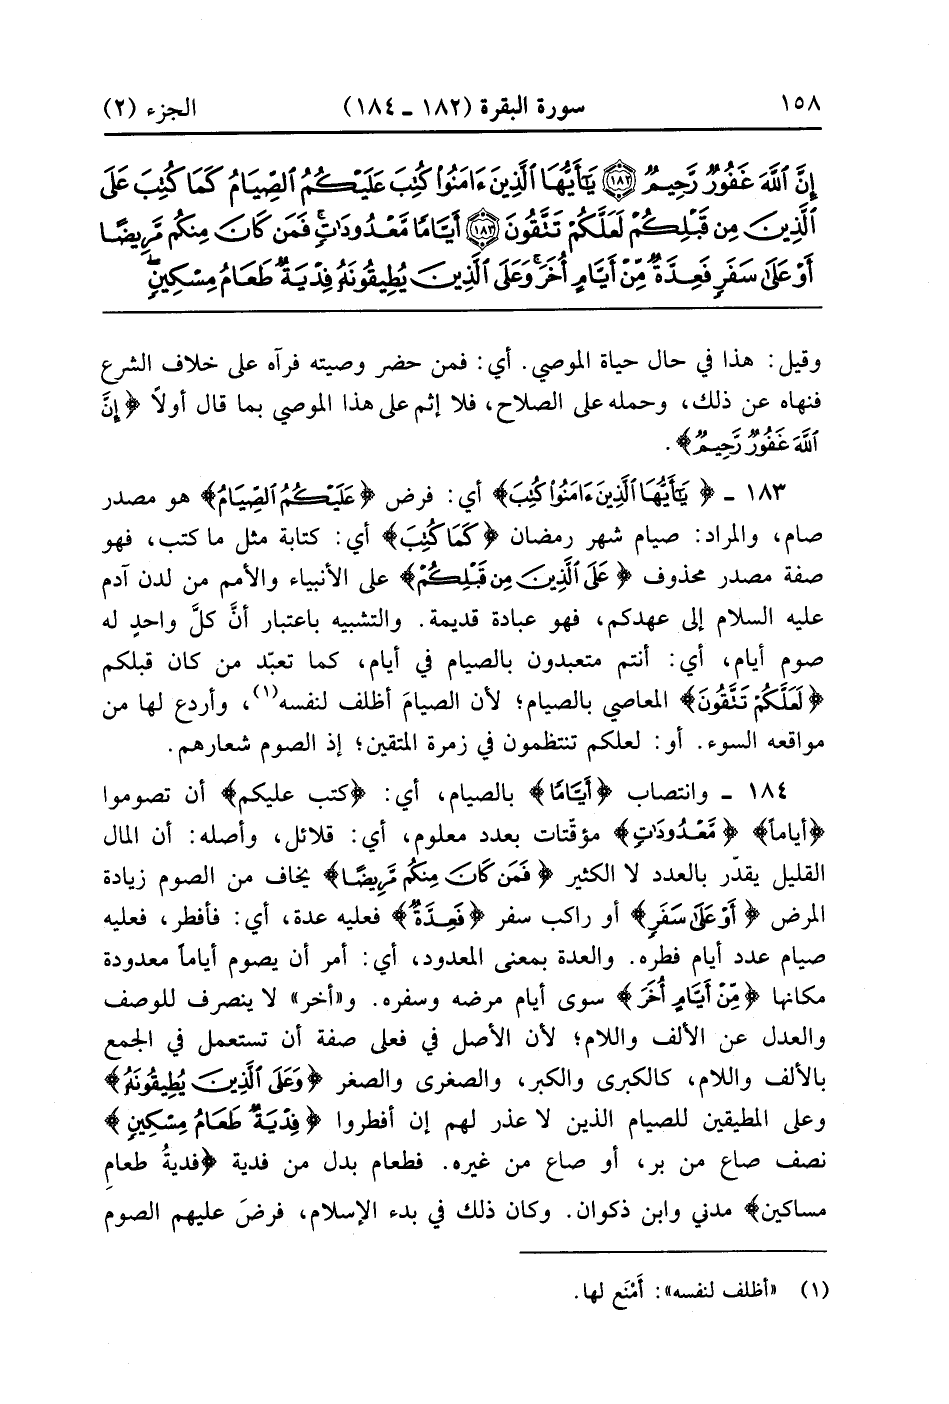 ١٥٨
سورة البقرة (١٨٢ ـ ١٨٤)
الجزء (٢)
إِنَّ ٱللَّهَ غَفُورٌ رَّحِيمٌ ١٨٢ يَٰٓأَيُّهَا ٱلَّذِينَ ءَامَنُوا۟ كُتِبَ عَلَيْكُمُ ٱلصِّيَامُ كَمَا كُتِبَ عَلَى
ٱلَّذِينَ مِن قَبْلِكُمْ لَعَلَّكُمْ تَتَّقُونَ ١٨٣ أَيَّامًا مَّعْدُودَٰتٍ ۚ فَمَن كَانَ مِنكُم مَّرِيضًا
أَوْ عَلَىٰ سَفَرٍ فَعِدَّةٌ مِّنْ أَيَّامٍ أُخَرَ ۚ وَعَلَى ٱلَّذِينَ يُطِيقُونَهُۥ فِدْيَةٌ طَعَامُ مِسْكِينٍ ۖ
وقيل: هذا في حال حياة الموصي. أي: فمن حضر وصيته فرآه على خلاف الشرع
فنهاه عن ذلك، وحمله على الصلاح، فلا إثم على هذا الموصي بما قال أولاً ﴿إِنَّ
ٱللَّهَ غَفُورٌ رَّحِيمٌ﴾.
١٨٣ ـ ﴿يَٰٓأَيُّهَا ٱلَّذِينَ ءَامَنُوا۟ كُتِبَ﴾ أي: فرض ﴿عَلَيْكُمُ ٱلصِّيَامُ﴾ هو مصدر
صام، والمراد: صيام شهر رمضان ﴿كَمَا كُتِبَ﴾ أي: كتابة مثل ما كتب، فهو
صفة مصدر محذوف ﴿عَلَى ٱلَّذِينَ مِن قَبْلِكُمْ﴾ على الأنبياء والأمم من لدن آدم
عليه السلام إلى عهدكم، فهو عبادة قديمة. والتشبيه باعتبار أنَّ كلَّ واحدٍ له
صوم أيام، أي: أنتم متعبدون بالصيام في أيام، كما تعبّد من كان قبلكم
﴿لَعَلَّكُمْ تَتَّقُونَ﴾ المعاصي بالصيام؛ لأن الصيامَ أظلف لنفسه(١)، وأردع لها من
مواقعه السوء. أو: لعلكم تنتظمون في زمرة المتقين؛ إذ الصوم شعارهم.
١٨٤ ـ وانتصاب ﴿أَيَّامًا﴾ بالصيام، أي: ﴿كتب عليكم﴾ أن تصوموا
﴿أياماً﴾ ﴿مَّعْدُودَٰتٍ﴾ مؤقّتات بعدد معلوم، أي: قلائل، وأصله: أن المال
القليل يقدّر بالعدد لا الكثير ﴿فَمَن كَانَ مِنكُم مَّرِيضًا﴾ يخاف من الصوم زيادة
المرض ﴿أَوْ عَلَىٰ سَفَرٍ﴾ أو راكب سفر ﴿فَعِدَّةٌ﴾ فعليه عدة، أي: فأفطر، فعليه
صيام عدد أيام فطره. والعدة بمعنى المعدود، أي: أمر أن يصوم أياماً معدودة
مكانها ﴿مِّنْ أَيَّامٍ أُخَرَ﴾ سوى أيام مرضه وسفره. و«أخر» لا ينصرف للوصف
والعدل عن الألف واللام؛ لأن الأصل في فعلى صفة أن تستعمل في الجمع
بالألف واللام، كالكبرى والكبر، والصغرى والصغر ﴿وَعَلَى ٱلَّذِينَ يُطِيقُونَهُۥ﴾
وعلى المطيقين للصيام الذين لا عذر لهم إن أفطروا ﴿فِدْيَةٌ طَعَامُ مِسْكِينٍ﴾
نصف صاع من بر، أو صاع من غيره. فطعام بدل من فدية ﴿فديةُ طعامِ
مساكين﴾ مدني وابن ذكوان. وكان ذلك في بدء الإسلام، فرضَ عليهم الصوم
(١) «أظلف لنفسه»: أَمْنَع لها.